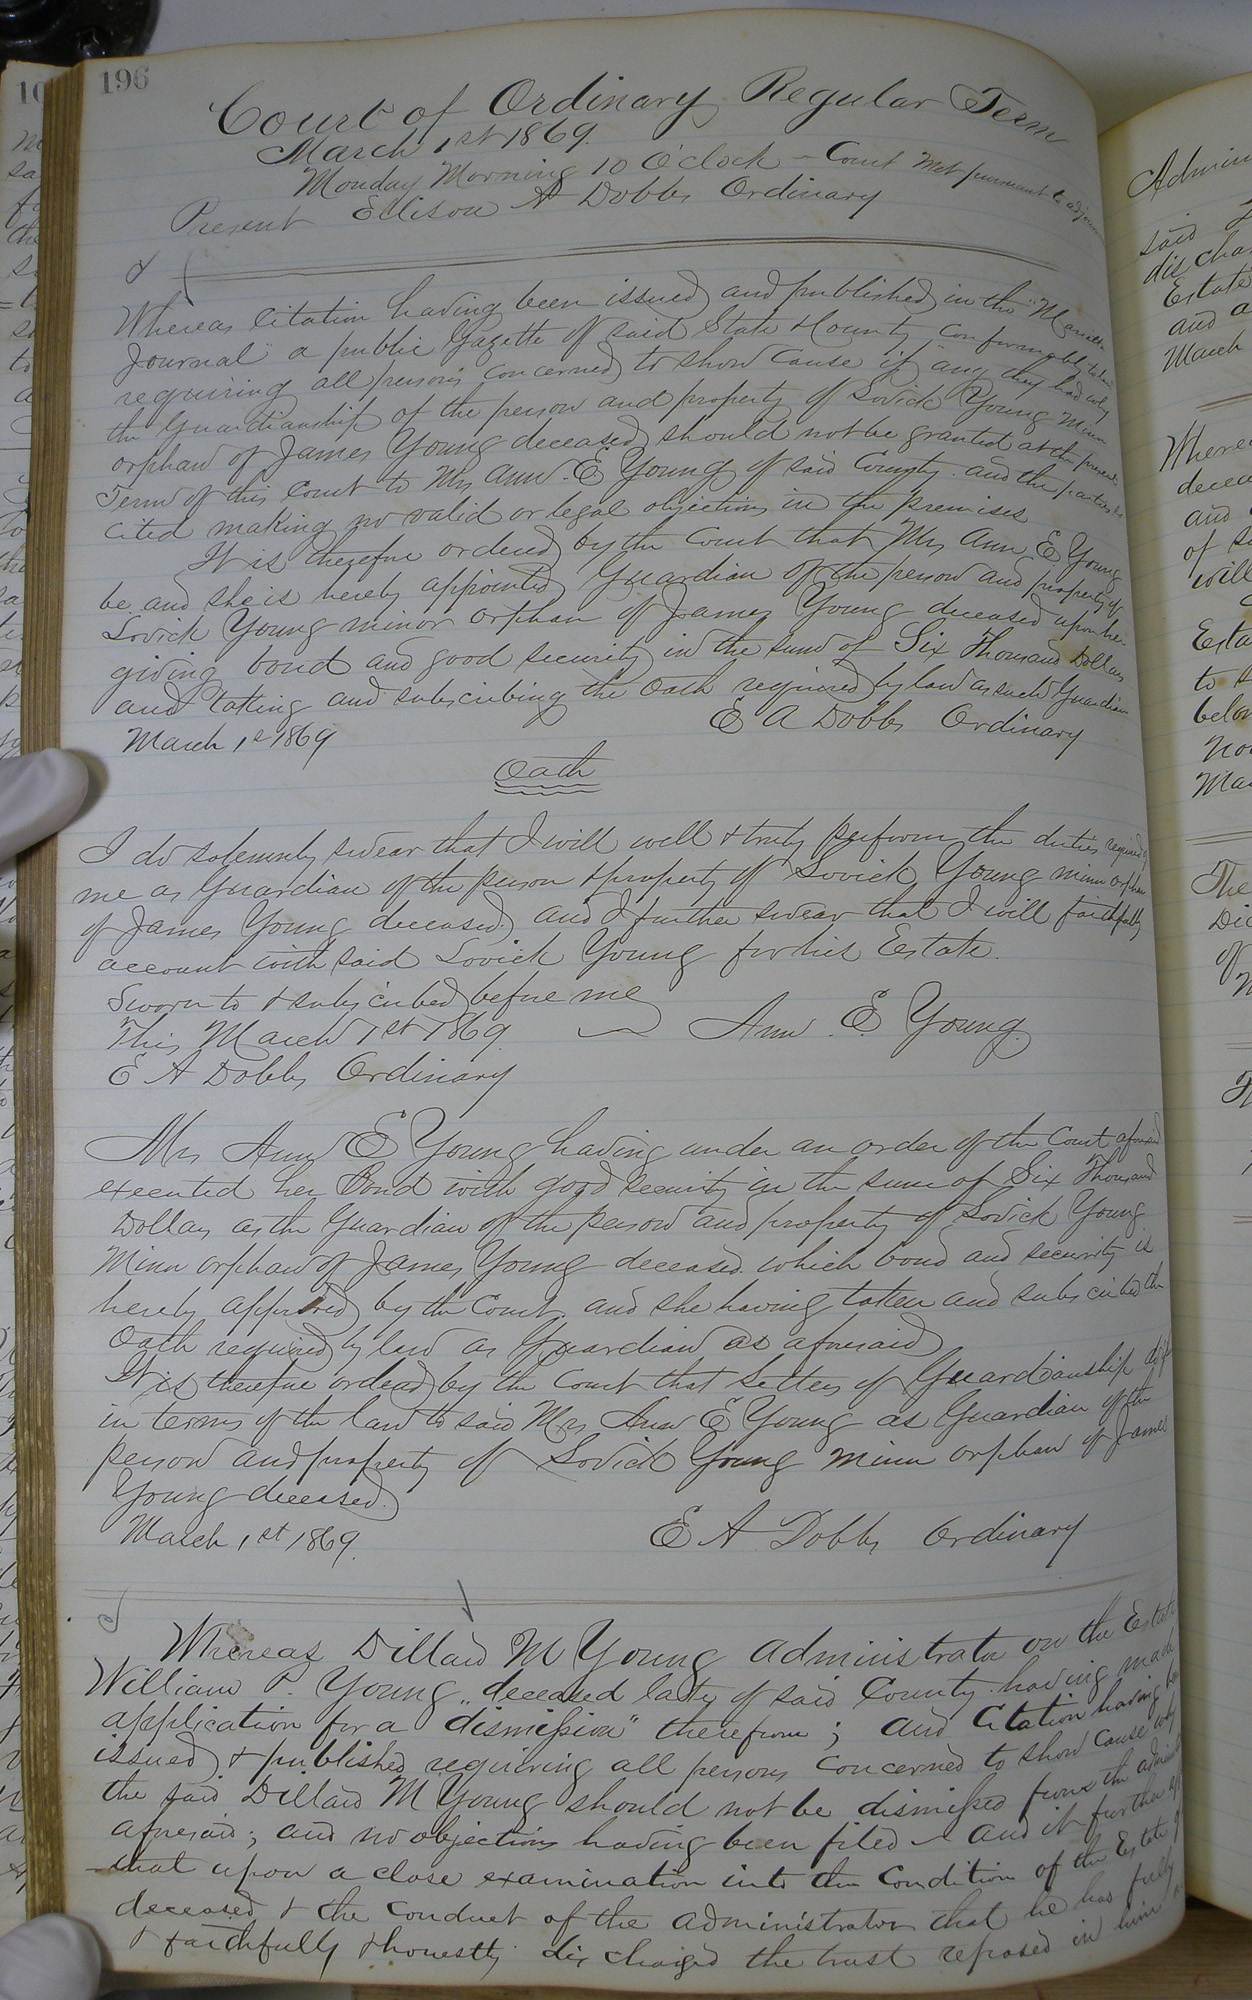 196
Court of Ordinary Regular Term
March 1st 1869.
Monday Morning 10 O'clock – Court Met pursuant to
Present Ellison A Dobbs Ordinary
Whereas Citation having been issued and published in the "Marietta
Journal" a public Gazette of said State & County conformably to law
requiring all persons concerned to show cause if any they had why
the Guardianship of the person and property of Lovick Young Minor
orphan of James Young deceased, should not be granted at the present
Term of this Court to Mrs Ann. E Young of said County. and the parties
cited making no valid or legal objections in the premises
It is therefore ordered by the Court that Mrs Ann. E Young
be and she is hereby appointed Guardian of the person and property of
Lovick Young minor orphan of James Young deceased upon her
giving bond and good security in the sum of Six Thousand Dollars
and taking and subscribing the Oath required by law as such Guardian
March 1st 1869 E A Dobbs Ordinary
Oath
I do solemnly swear that I will well & truly perform the duties required of
me as Guardian of the person & property of Lovick Young minor orphan
of James Young deceased, and I further swear that I will faithfully
account with said Lovick Young for his Estate.
Sworn to & subscribed before me
This March 1st 1869. Ann. E. Young.
E A Dobbs Ordinary
Mrs Ann E Young having under an order of the Court aforesaid
executed her Bond with good security in the sum of Six Thousand
Dollars as the Guardian of the person and property of Lovick Young
Minor orphan of James Young deceased. which bond and security is
hereby approved by the Court, and she having taken and subscribed the
Oath required by law as Guardian as aforesaid
It is therefore ordered by the Court that Letters of Guardianship
in terms of the law to said Mrs Ann E Young as Guardian of the
person and property of Lovick Young minor orphan of James
Young deceased.
March 1st 1869. E A Dobbs Ordinary
Whereas Dillard M Young Administrator on the Estate
William P. Young, deceased late of said County having made
application for a "dismission" therefrom; and Citation having been
issued & published requiring all persons concerned to show cause why
the said Dillard M Young should not be dismissed from the
aforesaid; and no objections having been filed – and it further
that upon a close examination into the Condition of the Estate of
deceased & the conduct of the administrator that he has fully
& faithfully & honestly discharged the trust reposed in him